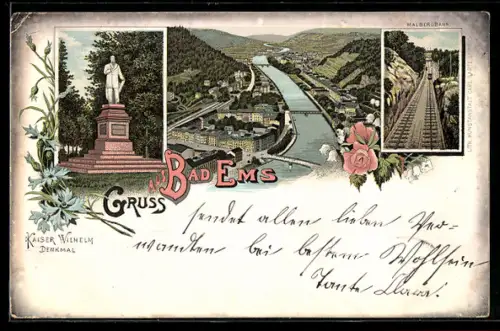 MALBERGBAHN
GRUSS
aus BAD EMS
KAISER WILHELM
DENKMAL
sendet allen lieben Ver-
wandten bei bestem Wohlsein
Tante Clara.